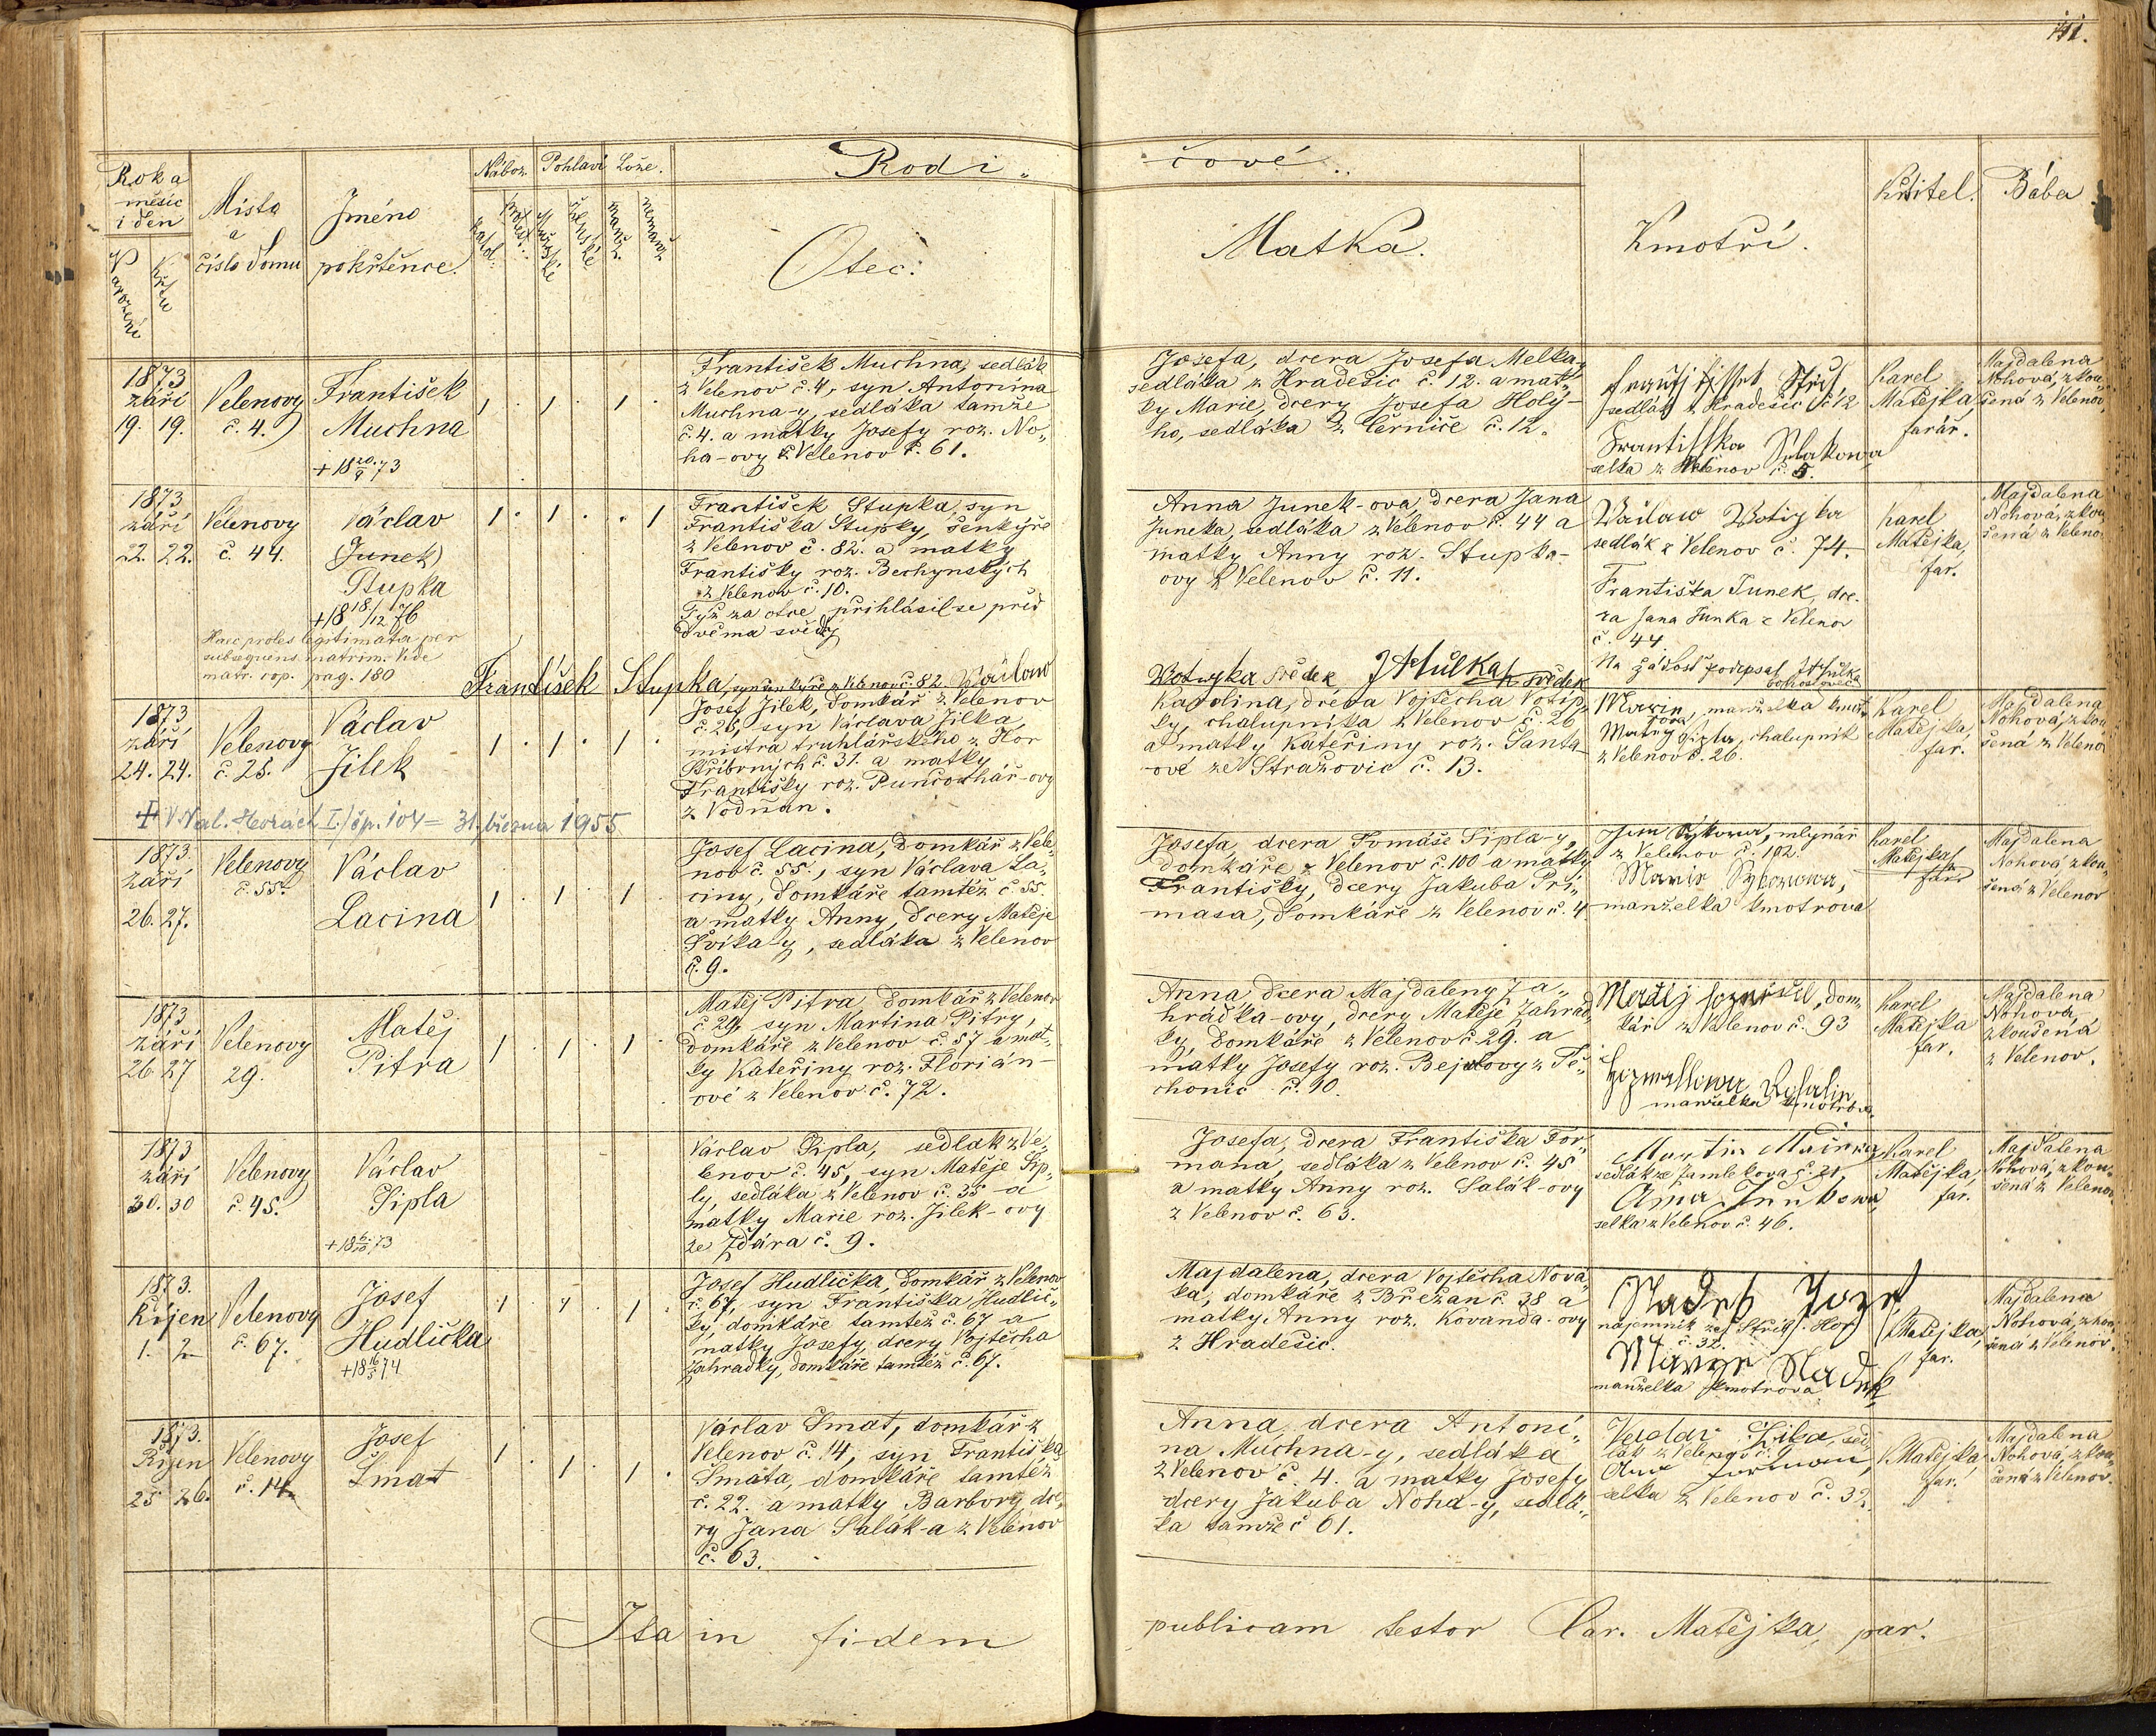 111.
Rok a
měsíc
i den
Narození
Křtu
Místo
a
číslo domu
Jméno
pokřtěnce.
Nábož.
Pohlaví
Lože.
katol.
protest.
Mužské
Ženské
manž.
nemanž.
Rodi„
čové..
Otec.
Matka.
Kmotři.
Křtitel.
Bába
1873
září
19. 19.
Velenovy
č. 4.
František
Muchna
+18 20./9 73
1 . 1 . 1 .
František Muchna, sedlák
z Velenov č. 4, syn Antonína
Muchna-y, sedláka tamže
č. 4. a matky Josefy roz. No„
ha-ovy z Velenov č. 61.
Josefa, dcera Josefa Melka,
sedláka z Hradešic č. 12. a mat„
ky Marie, dcery Josefa Holý-
ho, sedláka z Černíče č. 12.
sedlák z Hradešic č. 12
Frantisska
selka z Velenov č. 5.
Karel
Matějka,
farář.
Majdalena
Nohová, zkou„
šená z Velenov
1873
září
22. 22.
Velenovy
č. 44.
Václav
(Junek)
Stupka
+18 18/12 76
Haec proles legitimata per
subsequens matrim. Vide
matr. cop. pag. 180
1 . 1 . . 1
František Stupka, syn
Františka Stupky, šenkýře
z Velenov č. 82. a matky
Františky roz. Bechynských
z Velenov č. 10.
Týž za otce přihlásil se před
dvěma svědky
František Stupka, syn šenkýře z Velenov č. 82. Wáclaw
Anna Junek-ová, dcera Jana
Juneka, sedláka z Velenov č. 44 a
matky Anny roz. Stupka-
ovy z Velenov č. 11.
Wotypka svědek J Hůlka svědek
Wáclaw Wotipka
sedlák z Velenov č. 74.
Františka Junek, dce-
ra Jana Junka z Velenov
č. 44
Na žádost podepsal J Hůlka
bohoslovec
Karel
Matějka,
far.
Majdalena
Nohová, zkou
šená z Veleno
1873
září
24. 24.
Velenovy
č. 28.
Václav
Jílek
1 . 1 . 1 .
+ V Nal. Horách I./čp. 104 = 31. března 1955
Josef Jílek, domkář z Velenov
č. 28, syn Václava Jílka,
mistra truhlářského z Hor
Stříbrných č. 31. a matky
Františky roz. Punčochář-ovy
z Vodňan.
Karolina, dcera Vojtěcha Votip„
ky, chalupníka z Velenov č. 26
a matky Kateřiny roz. Šanta-
ové ze Stražovic č. 13.
manželka kmot„
rova
chalupník
z Velenov č. 26.
Karel
Matějka,
far.
Majdalena
Nohová, zkou
šená z Veleno
1873
září
26. 27.
Velenovy
č. 55.
Václav
Lacina
1 . 1 . 1 .
Josef Lacina, domkář z Vele„
nov č. 55., syn Václava La„
ciny, domkáře tamtéž č. 55.
a matky Anny, dcery Matěje
Švíka-y, sedláka z Velenov
č. 9.
Josefa, dcera Tomáše Šipla-y,
domkáře z Velenov č. 100 a matky
Františky, dcery Jakuba Pri„
masa, domkáře z Velenov č. 4
mlynář
z Velenov č. 102.
manželka kmotrova
Karel
Matějka
far.
Majdalena
Nohová zkou„
šená z Velenov
1873
září
26 27
Velenovy
29.
Matěj
Pitra
1 . 1 . 1 .
Matěj Pitra, domkář z Velenov
č. 29, syn Martina Pitry,
domkáře z Velenov č. 57 a mat„
ky Kateřiny roz. Florián-
ové z Velenov č. 72.
Anna, dcera Majdaleny Za„
hrádka-ovy, dcery Matěje Zahrád„
ky, domkáře z Velenov č. 29. a
matky Josefy roz. Bejalovy z Tě„
chonic č. 10.
dom„
kář z Velenov č. 93
manželka kmotrova
Karel
Matějka
far.
Majdalena
Nohova,
zkoušená
z Velenov.
1873
září
30. 30
Velenovy
č. 45.
Václav
Šipla
+18 6./10 73
Václav Šipla, sedlák z Ve„
lenov č. 45, syn Matěje Šip„
ly, sedláka z Velenov č. 35 a
matky Marie roz. Jílek-ovy
ze Ždára č. 9.
Josefa, dcera Františka For„
mana, sedláka z Velenov č. 45
a matky Anny roz. Salák-ovy
z Velenov č. 63.
Martin
sedlák
Anna Junkowa,
selka z Velenov č. 46.
Karel
Matějka,
far.
Majdalena
Nohová, zkou„
šená z Velenov
1873.
Říjen
1. 2
Velenovy
č. 67.
Josef
Hudlička
+18 16/5 74
1 . 1 . 1 .
Josef Hudlička, domkář z Velenov
č. 67, syn Františka Hudlič„
ky, domkáře tamtéž č. 67 a
matky Josefy, dcery Vojtěcha
Zahradky, domkáře tamtéž č. 67.
Majdalena, dcera Vojtěcha Nová„
ka, domkáře z Břežan č. 38 a
matky Anny roz. Kovanda-ovy
z Hradešic.
Nadrh Jozef
nájemník ze Stříb. Hor
č. 32.
Marye Nadrh
manželka kmotrova
K. Matějka,
far.
Majdalena
Nohová, zkou„
šená z Velenov.
1873.
Říjen
25 26.
Velenovy
č. 14
Josef
Šmat
1 . 1 . 1 .
Václav Šmat, domkář z
Velenov č. 14, syn Františka
Šmata, domkáře tamtéž
č. 22. a matky Barbory, dce„
ry Jana Salák-a z Velenov
č. 63.
Anna, dcera Antoni„
na Muchna-y, sedláka
z Velenov č. 4. a matky Josefy
dcery Jakuba Noha-y, sedlá„
ka tamže č 61.
sed„
lák z Velenov č. 9
selka z Velenov č. 39.
K. Matějka,
far.
Majdalena
Nohová, zkou„
šená z Velenov.
Ita in fidem publicam testor Car. Matějka, par.